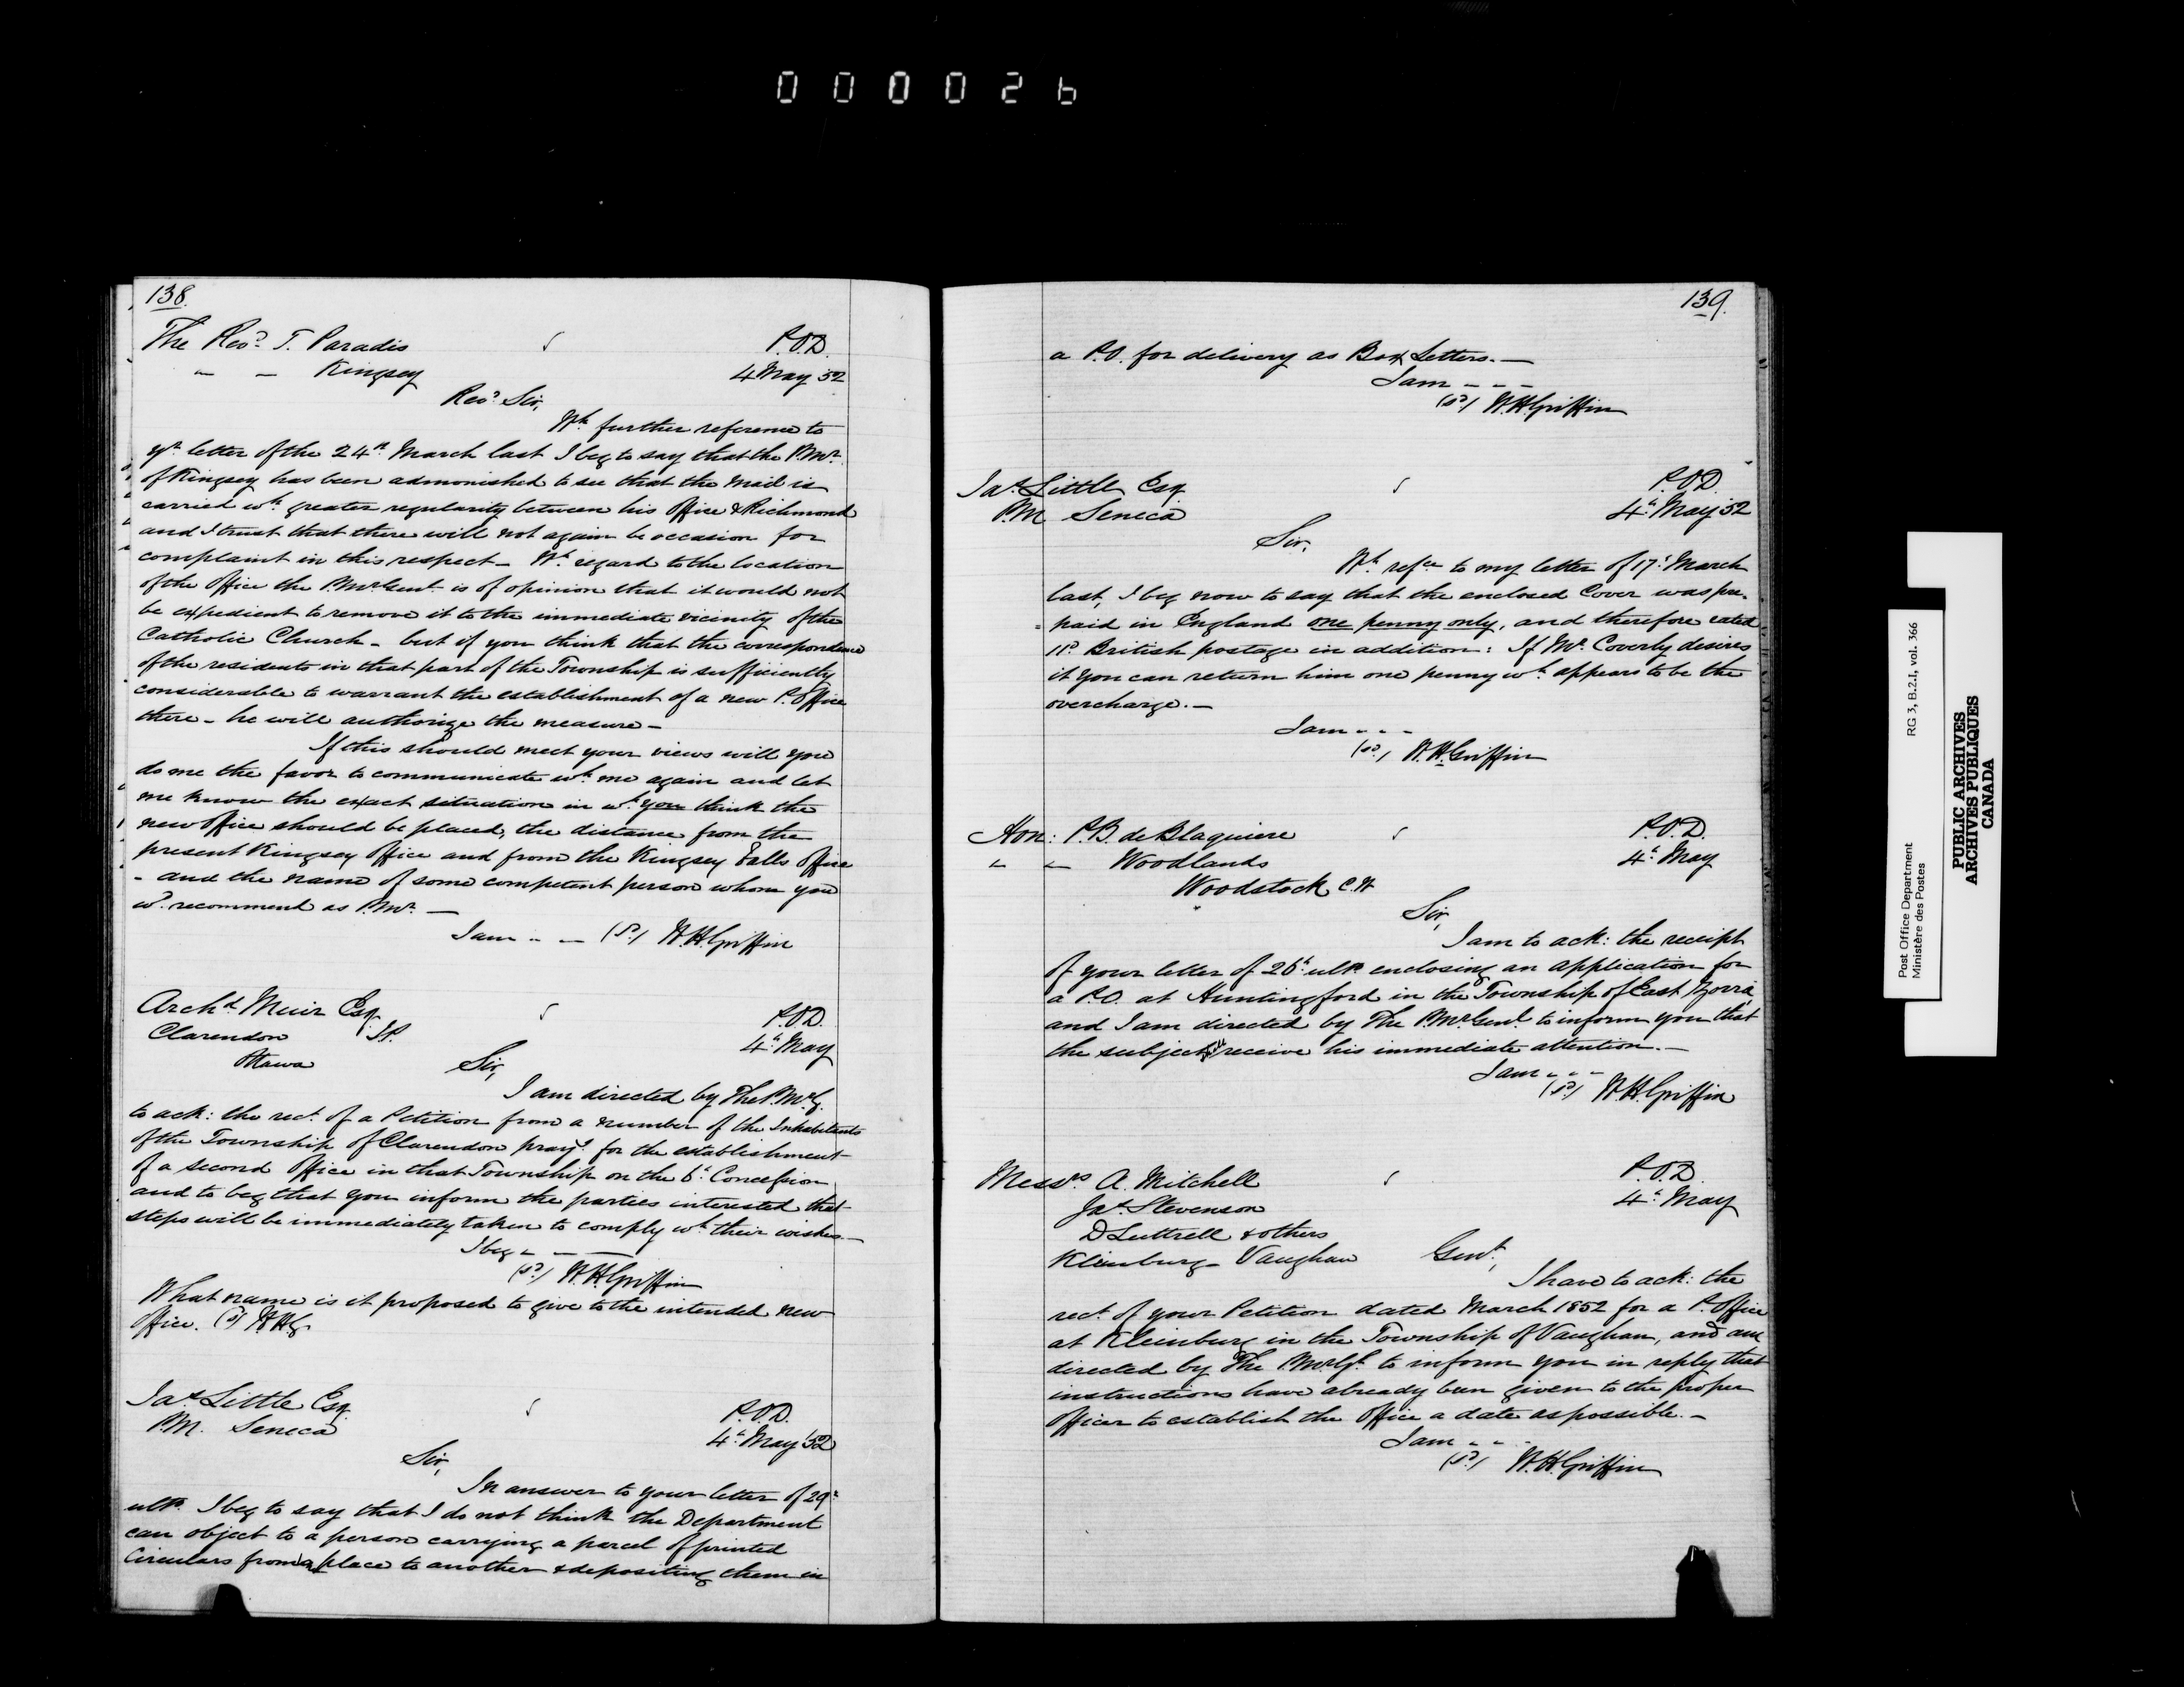 000026
138.
The Revd. T. Paradis P.O.D.
" - Kingsey 4 May 52
Revd. Sir,
Wh. further reference to
yr. letter of the 24th. March last I beg to say that the P.Mr.
of Kingsey has been admonished to see that the Mail is
carried wh. greater regularity between his Office & Richmond
and I trust that there will not again be occasion for
complaint in this respect - Wh. regard to the location
of the Office the P.Mr Genl. is of opinion that it would not
be expedient to remove it to the immediate vicinity of the
Catholic Church - but if you think that the correspondence
of the residents in that part of the Township is sufficiently
considerable to warrant the establishment of a new P. Office
there - he will authorize the measure -
If this should meet your views will you
do me the favor to communicate wh. me again and let
me know the exact situation in wh. you think the
new Office should be placed, the distance from the
present Kingsey Office and from the Kingsey Falls Office
- and the name of some competent person whom you
wd. recommend as P.Mr. -
I am " - (Sd.) W.H. Griffin
Archd. Muir Esq. P.O.D.
Clarendon J.P. 4th. May
Ottawa Sir,
I am directed by The P.Mr.G.
to ack: the rect. of a Petition from a number of the Inhabitants
of the Township of Clarendon prayg. for the establishment
of a second Office in that Township on the 6th. Concession
and to beg that you inform the parties interested that
steps will be immediately taken to comply wh. their wishes -
I beg - - -
(Sd.) W.H. Griffin
What name is it proposed to give to the intended new
Office. (Sd) W.H.G.
Jas. Little Esq. P.O.D.
P.M. Seneca 4th. May '52
Sir,
In answer to your letter of 29th.
ulto. I beg to say that I do not think the Department
can object to a person carrying a parcel of printed
Circulars from place to another & depositing them in
139.
a P.O. for delivery as Box Letters. -
I am - - -
(Sd.) W.H. Griffin
Jas. Little Esq. P.O.D.
P.M. Seneca 4th. May 52
Sir,
Wh. refce to my letter of 17th. March
last, I beg now to say that the enclosed Cover was pre-
paid in England one penny only, and therefore rated
11d. British postage in addition: If Mr. Coverly desires
it you can return him one penny wh. appears to be the
overcharge. -
I am - - -
(Sd.) W.H. Griffin
Hon: P.B. de Blaquiere P.O.D.
" " Woodlands 4th. May
Woodstock C.W
Sir,
I am to ack: the receipt
of your letter of 26th. ulto. enclosing an application for
a P.O. at Huntingford in the Township of East Zorra,
and I am directed by The P.Mr Genl. to inform you that
the subject will receive his immediate attention. -
I am - - -
(Sd.) W.H. Griffin
Messrs A. Mitchell P.O.D.
Jas. Stevenson 4th. May
D Luttrell & others
Kleinburg - Vaughan Gent.,
I have to ack: the
rect. of your Petition dated March 1852 for a P. Office
at Kleinburg in the Township of Vaughan, and am
directed by The P.Mr Gl. to inform you in reply that
instructions have already been given to the proper
Officer to establish the Office a date as possible. -
I am - -
(Sd.) W.H. Griffin
Post Office Department RG 3, B.2.I, vol. 366
Ministère des Postes
PUBLIC ARCHIVES
ARCHIVES PUBLIQUES
CANADA